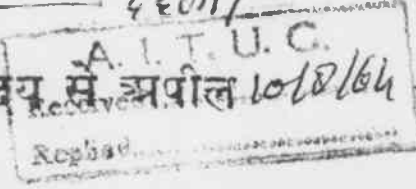 A. I. T. U. C.
से अपील 10/8/64
Received
Replied